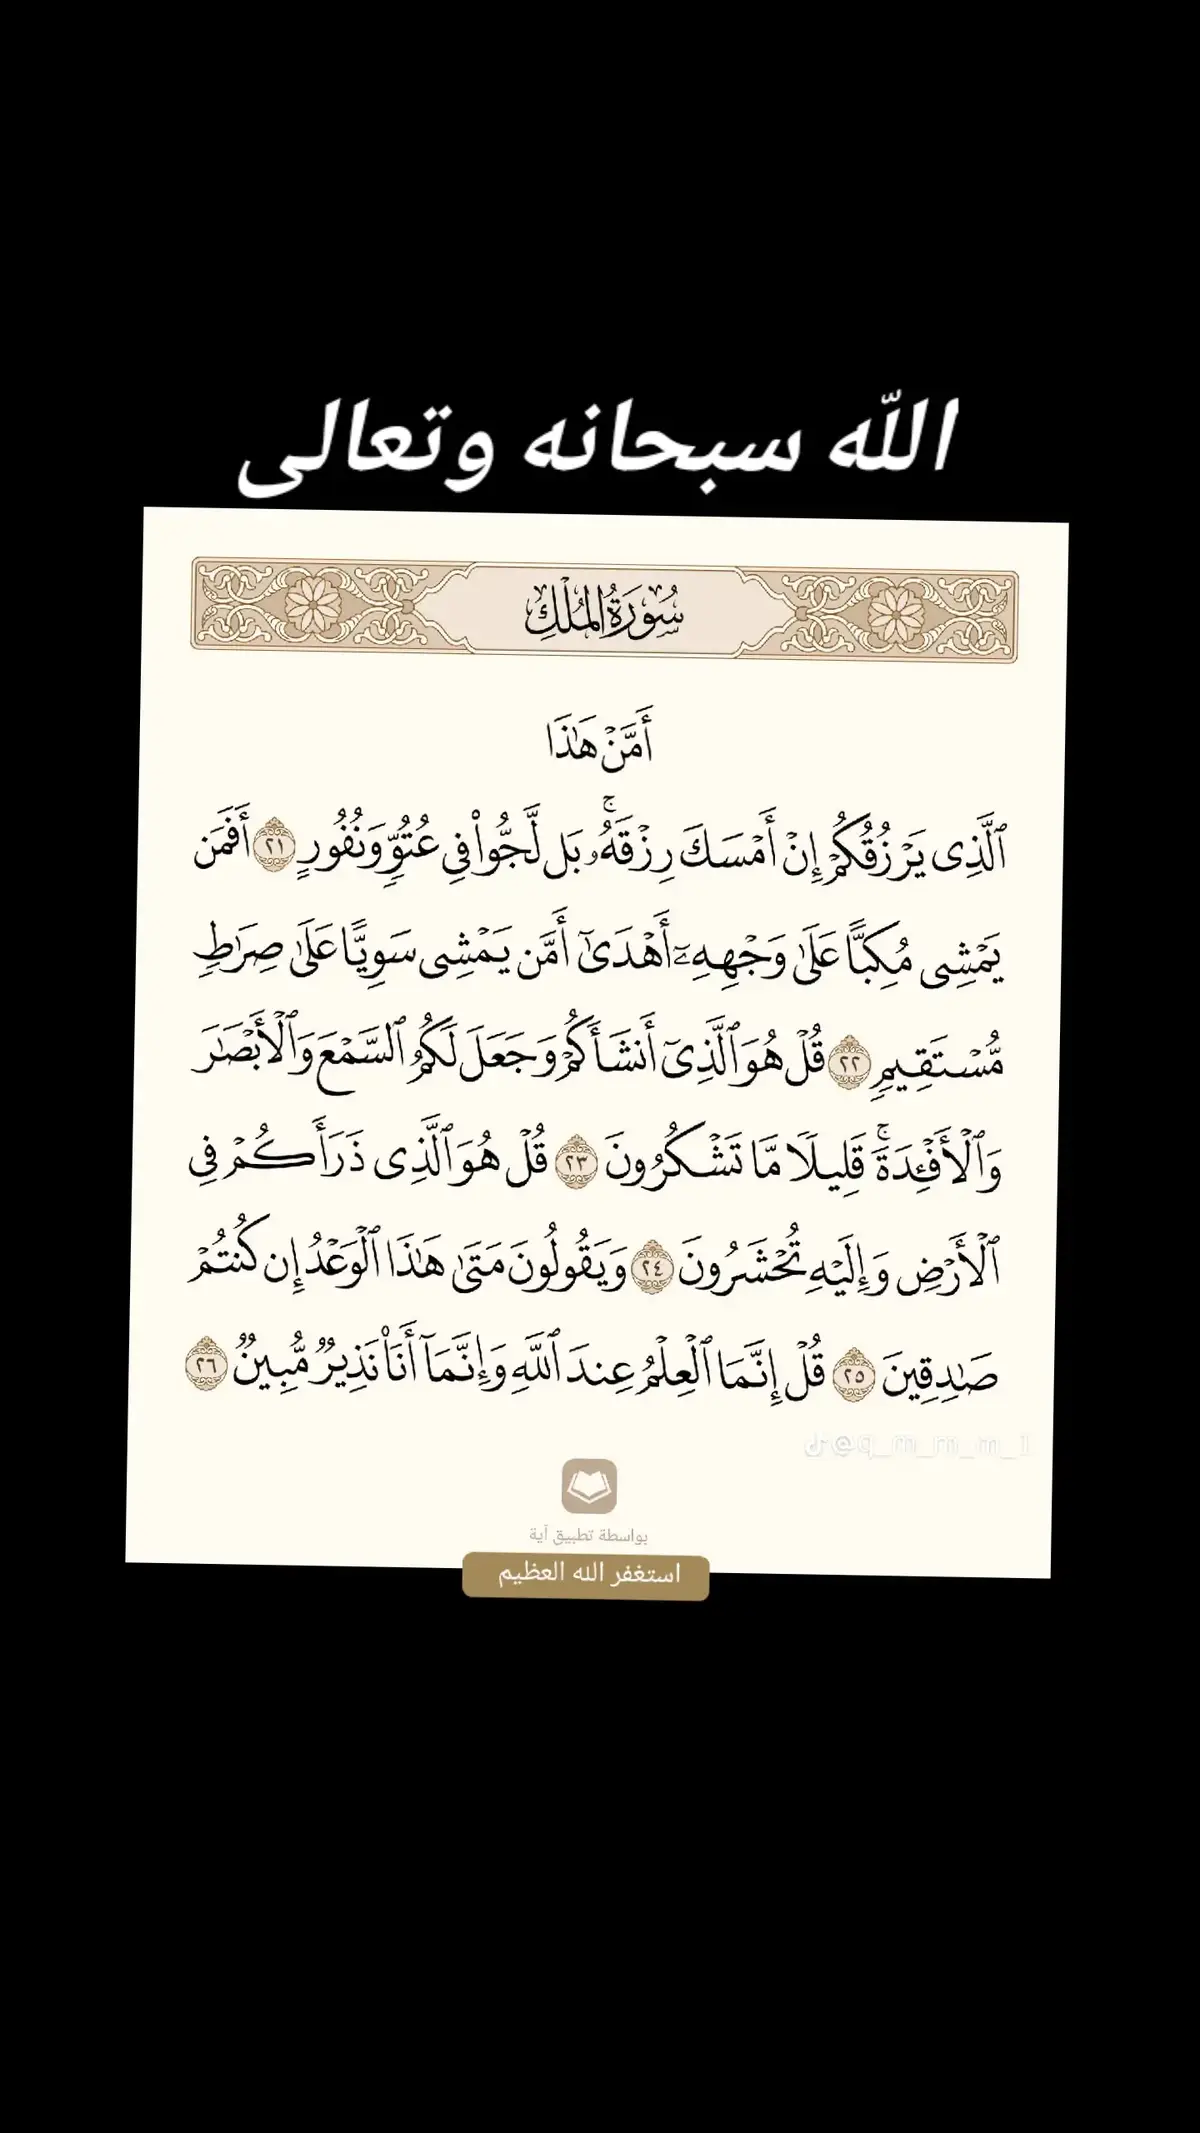 الله سبحانه وتعالى
سُورَةُ المُلْكِ
أَمَّنْ هَٰذَا
ٱلَّذِى يَرْزُقُكُمْ إِنْ أَمْسَكَ رِزْقَهُۥۚ بَل لَّجُّوا۟ فِى عُتُوٍّ وَنُفُورٍ ٢١ أَفَمَن
يَمْشِى مُكِبًّا عَلَىٰ وَجْهِهِۦٓ أَهْدَىٰٓ أَمَّن يَمْشِى سَوِيًّا عَلَىٰ صِرَٰطٍ
مُّسْتَقِيمٍ ٢٢ قُلْ هُوَ ٱلَّذِىٓ أَنشَأَكُمْ وَجَعَلَ لَكُمُ ٱلسَّمْعَ وَٱلْأَبْصَٰرَ
وَٱلْأَفْـِٔدَةَۚ قَلِيلًا مَّا تَشْكُرُونَ ٢٣ قُلْ هُوَ ٱلَّذِى ذَرَأَكُمْ فِى
ٱلْأَرْضِ وَإِلَيْهِ تُحْشَرُونَ ٢٤ وَيَقُولُونَ مَتَىٰ هَٰذَا ٱلْوَعْدُ إِن كُنتُمْ
صَٰدِقِينَ ٢٥ قُلْ إِنَّمَا ٱلْعِلْمُ عِندَ ٱللَّهِ وَإِنَّمَآ أَنَا۠ نَذِيرٌ مُّبِينٌ ٢٦
@q_m_m_m_1
بواسطة تطبيق آية
استغفر الله العظيم